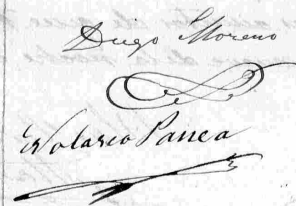 Diego Moreno
Nolasco Pausa